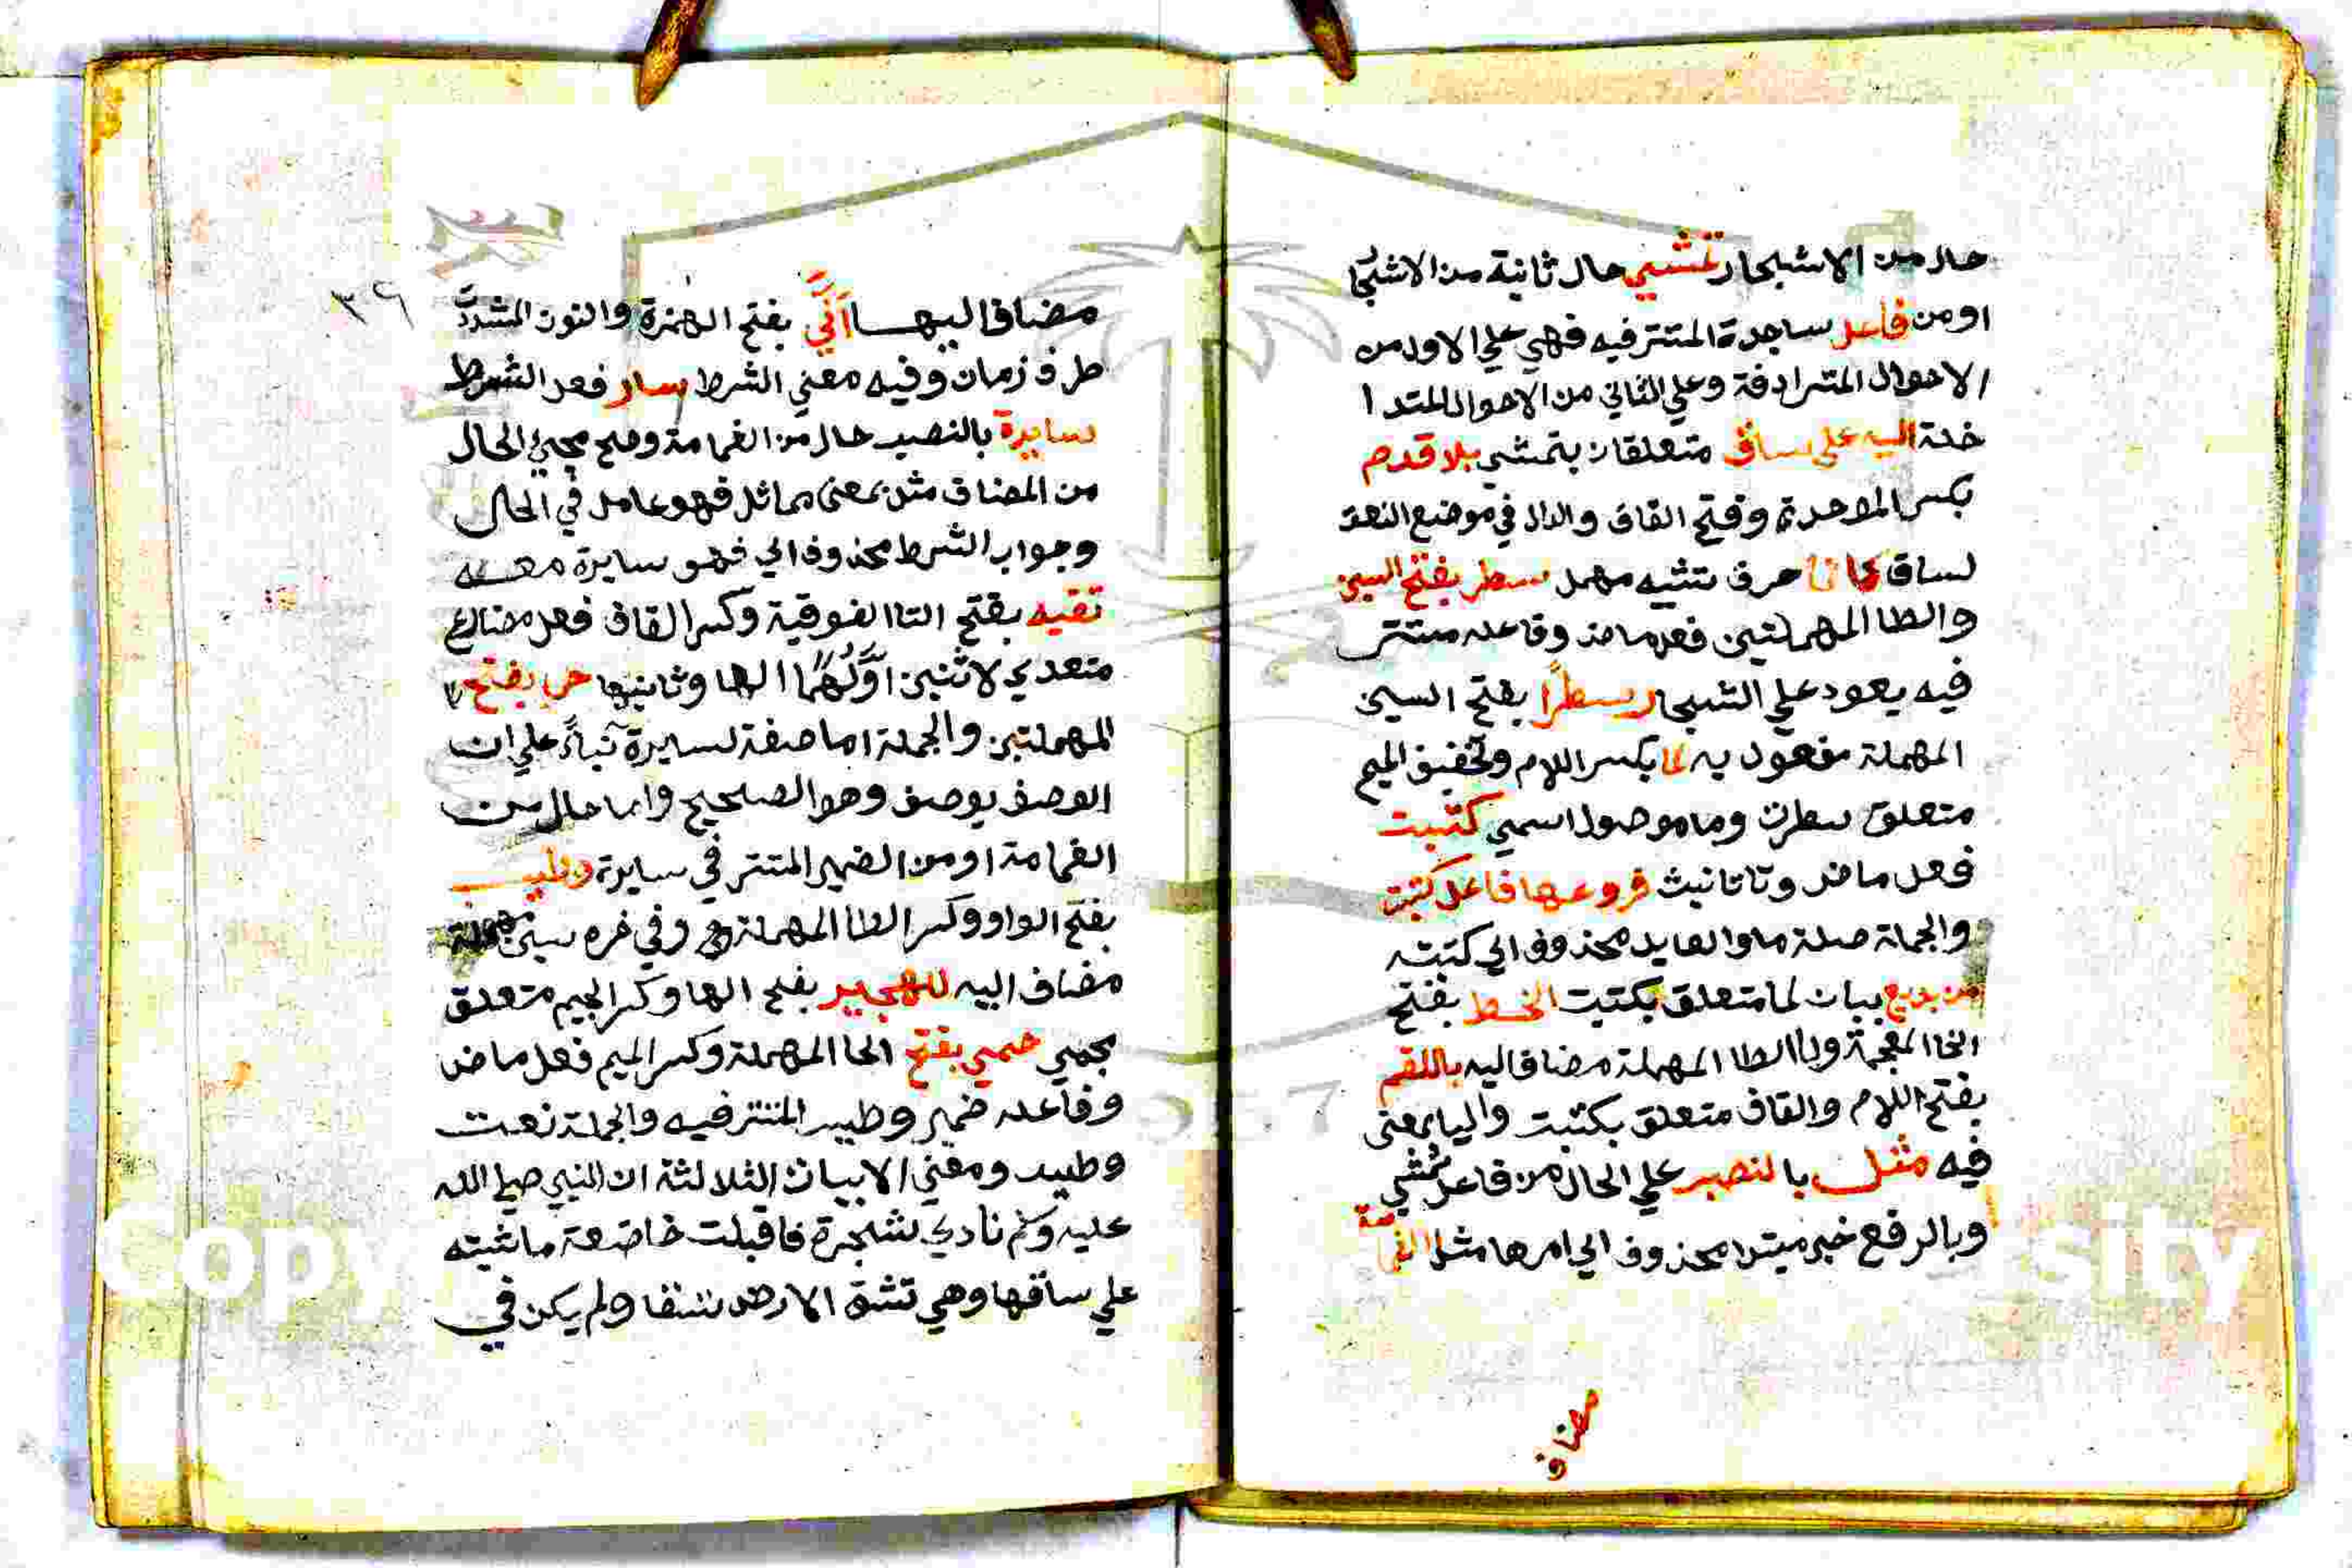 حال من الاشجار تمشي حال ثانية من الاشجا
او من فاعل ساجدة المتتر فيه فهي علي الاول من
الاحوال المترادفة وعلي الثاني من الاحوال المتدا
خلة اليه على ساق متعلقان بتمشي بلا قدم
بكسر الموحدة وفتح القاف والدال في موضع النعت
لساق كانما حرف تشيه مهمل سطر بفتح السين
والطا المهملتين فعل ماض وفاعله مستتر
فيه يعود علي الشجار سطرًا بفتح السين
المهملة مفعول به لما بكسر اللام وتخفيف الميم
متعلق بسطرت وما موصول اسمي كتبت
فعل ماض وتا تانيث فروعها فاعل كتبت
والجملة صلة ما والعايد محذوف اي كتبته
من بديع بيان لما متعلق بكتبت الخط بفتح
الخا المعجمة وبا الطا المهملة مضاف اليه باللقم
بفتح اللام والقاف متعلق بكتبت واليا بمعنى
فيه مثل بالنصب علي الحال من فاعل تمشي
وبالرفع خبر مبتدا محذوف اي امرها مثل الغمامة
مضاف
٣٦
مضاف اليها انَّي بفتح الهمزة والنون المشددَّ
ظرف زمان وفيه معني الشرط سار فعل الشرط
سايرة بالنصب حال من الغمامة وصح مجيئ الحال
من المضاف مثل بمعنى مماثل فهو عامل في الحال
وجواب الشرط محذوف اي فهو سايرة معه
تقيه بفتح التا الفوقية وكسر القاف فعل مضارع
متعدي لاثنين اوَّلُهُمَا الها وثانيها حر بفتح
المهملتين والجملة اما صفة لسايرة بناءً علي ان
الوصف يوصف وهو الصحيح واما حال من
الغمامة او من الضمير المتتر في سايرة وطيس
بفتح الواو وكسر الطا المهملة وفي اخره سين مهملة
مضاف اليه للهجير بفتح الها وكسر الجيم متعلق
بحمي حمي بفتح الحا المهملة وكسر الميم فعل ماض
وفاعله ضمير وطيس المتتر فيه والجملة نعت
وطيس ومعني الابيات الثلاثة ان النبي صلي الله
عليه وسلم نادي شجرة فاقبلت خاضعة ماشيته
علي ساقها وهي تشق الارض شقا ولم يكن في